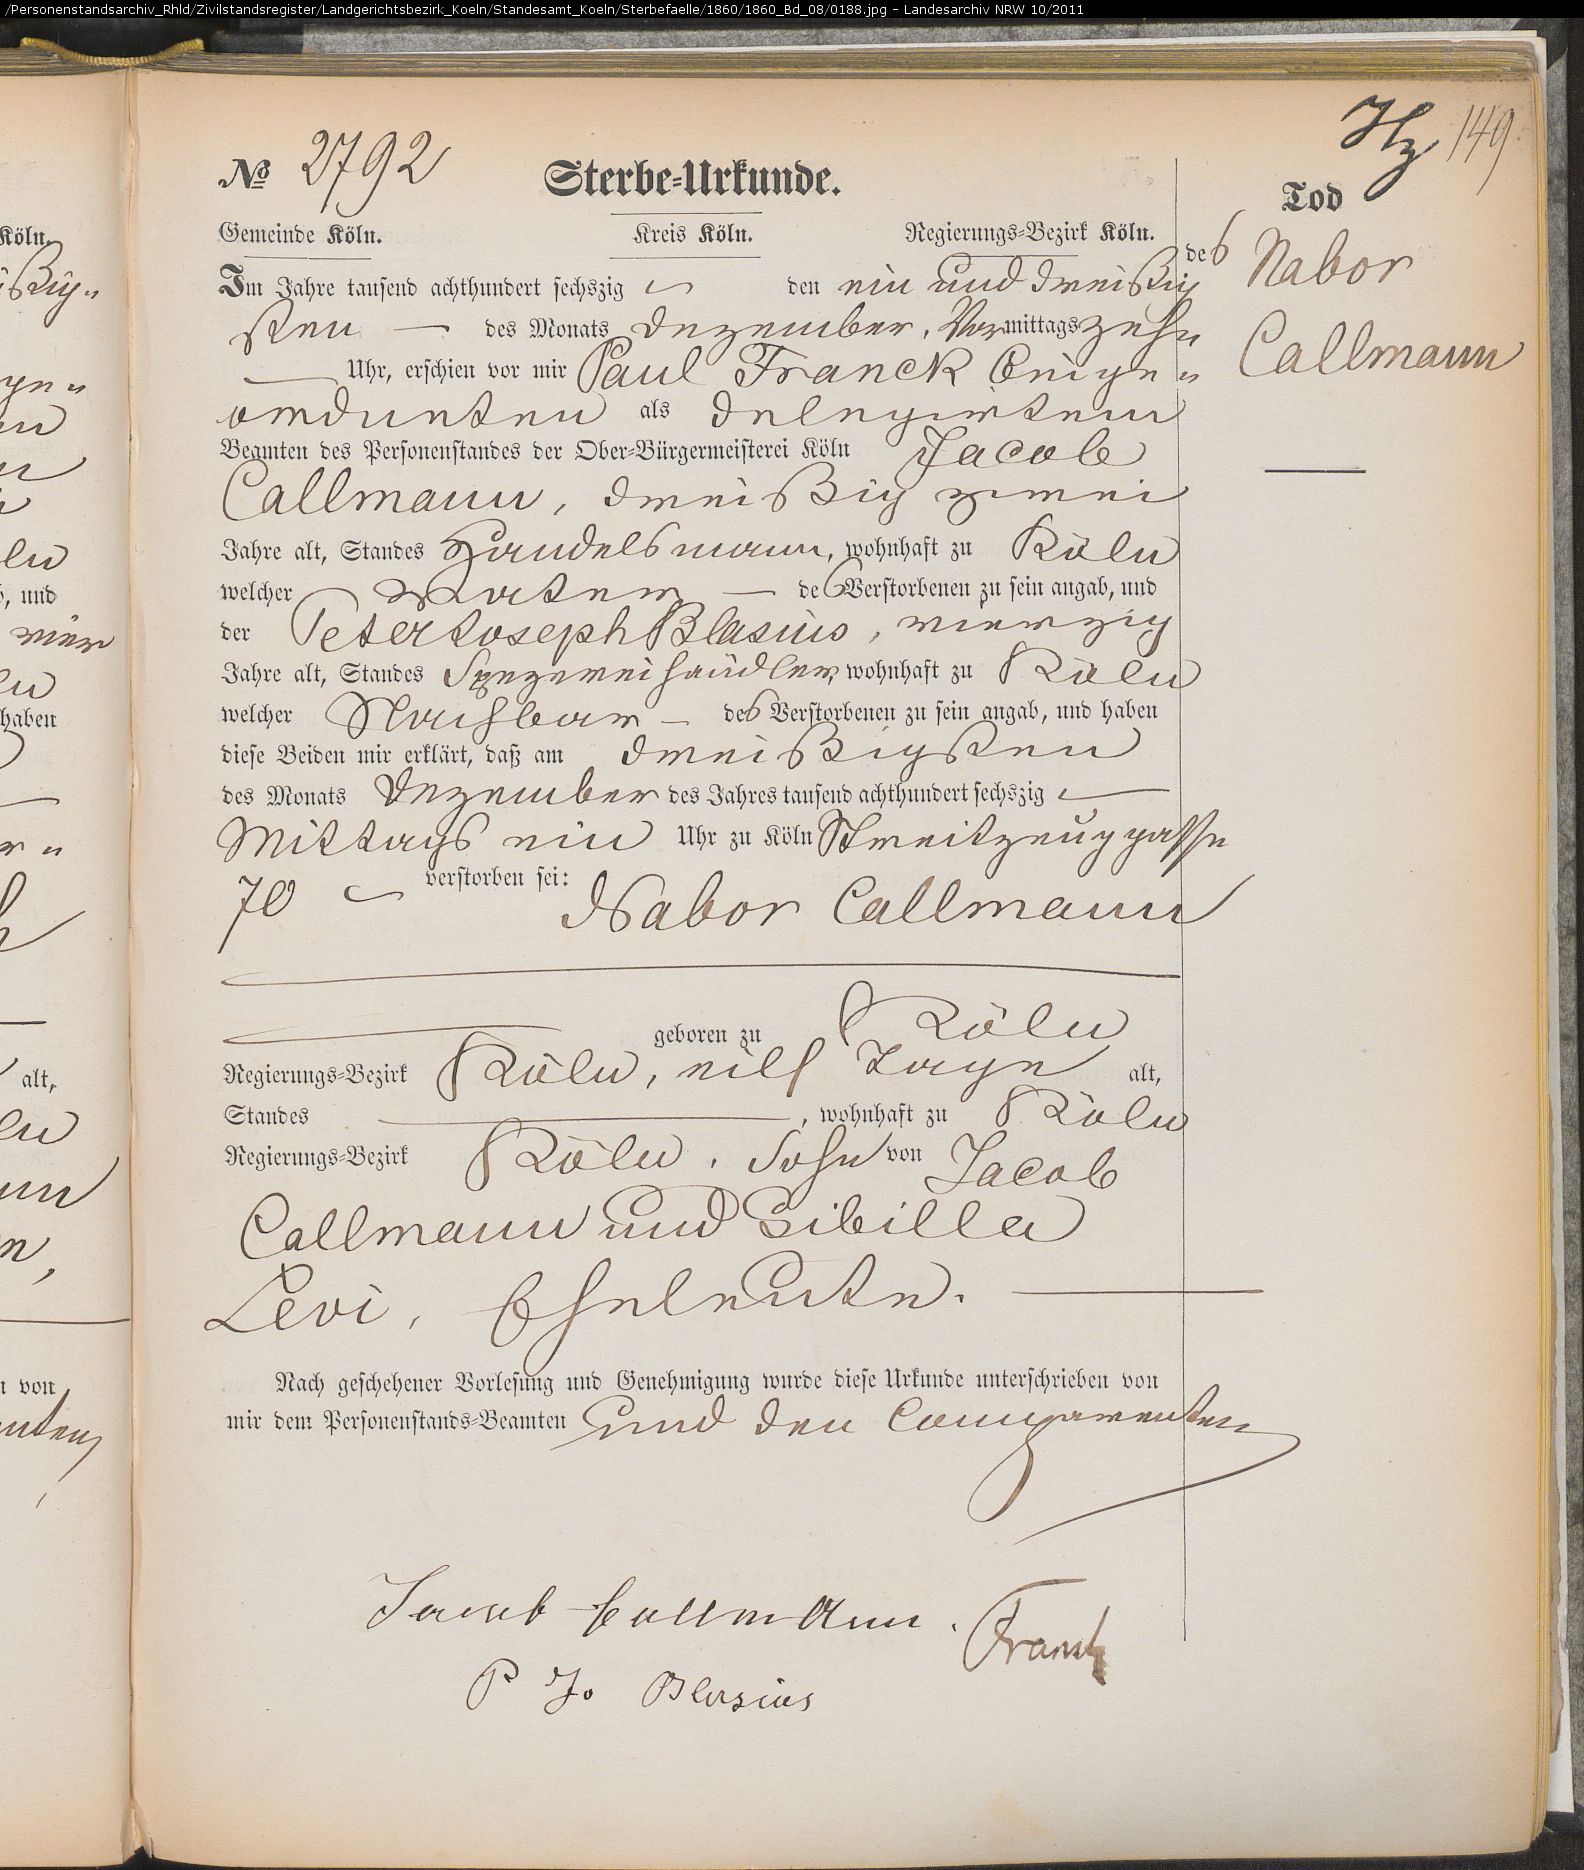 /Personenstandsarchiv_Rhld/Zivilstandsregister/Landgerichtsbezirk_Koeln/Standesamt_Koeln/Sterbefaelle/1860/1860_Bd_08/0188.jpg - Landesarchiv NRW 10/2011
149
№ 2792 Sterbe-Urkunde.
Gemeinde Köln. Kreis Köln. Regierungs-Bezirk Köln.
Im Jahre tausend achthundert sechszig den ein und dreißig
sten — des Monats Dezember, Vormittags zehn
— Uhr, erschien vor mir Paul Franck Beige-
ordneten als delegirtem
Beamten des Personenstandes der Ober-Bürgermeisterei Köln Jacob
Callmann, dreißig zwei
Jahre alt, Standes Handelsmann, wohnhaft zu Köln
welcher Vater — des Verstorbenen zu sein angab, und
der Peter Joseph Blasius, vierzig
Jahre alt, Standes Spezereihändler, wohnhaft zu Köln
welcher Nachbar — des Verstorbenen zu sein angab, und haben
diese Beiden mir erklärt, daß am dreißigsten
des Monats Dezember des Jahres tausend achthundert sechszig —
Mittags ein Uhr zu Köln Streitzeuggasse
70 verstorben sei: Nabor Callmann
geboren zu Köln
Regierungs-Bezirk Köln, eilf Tage alt,
Standes —, wohnhaft zu Köln
Regierungs-Bezirk Köln, Sohn von Jacob
Callmann und Sibilla
Levi, Eheleute. —
Nach geschehener Vorlesung und Genehmigung wurde diese Urkunde unterschrieben von
mir dem Personenstands-Beamten und den Comparenten
Jacob Callmann. Franck
P Jo Blasius
Tod
des Nabor
Callmann
Köln.
ßig-
und
vier
haben
alt,
n von